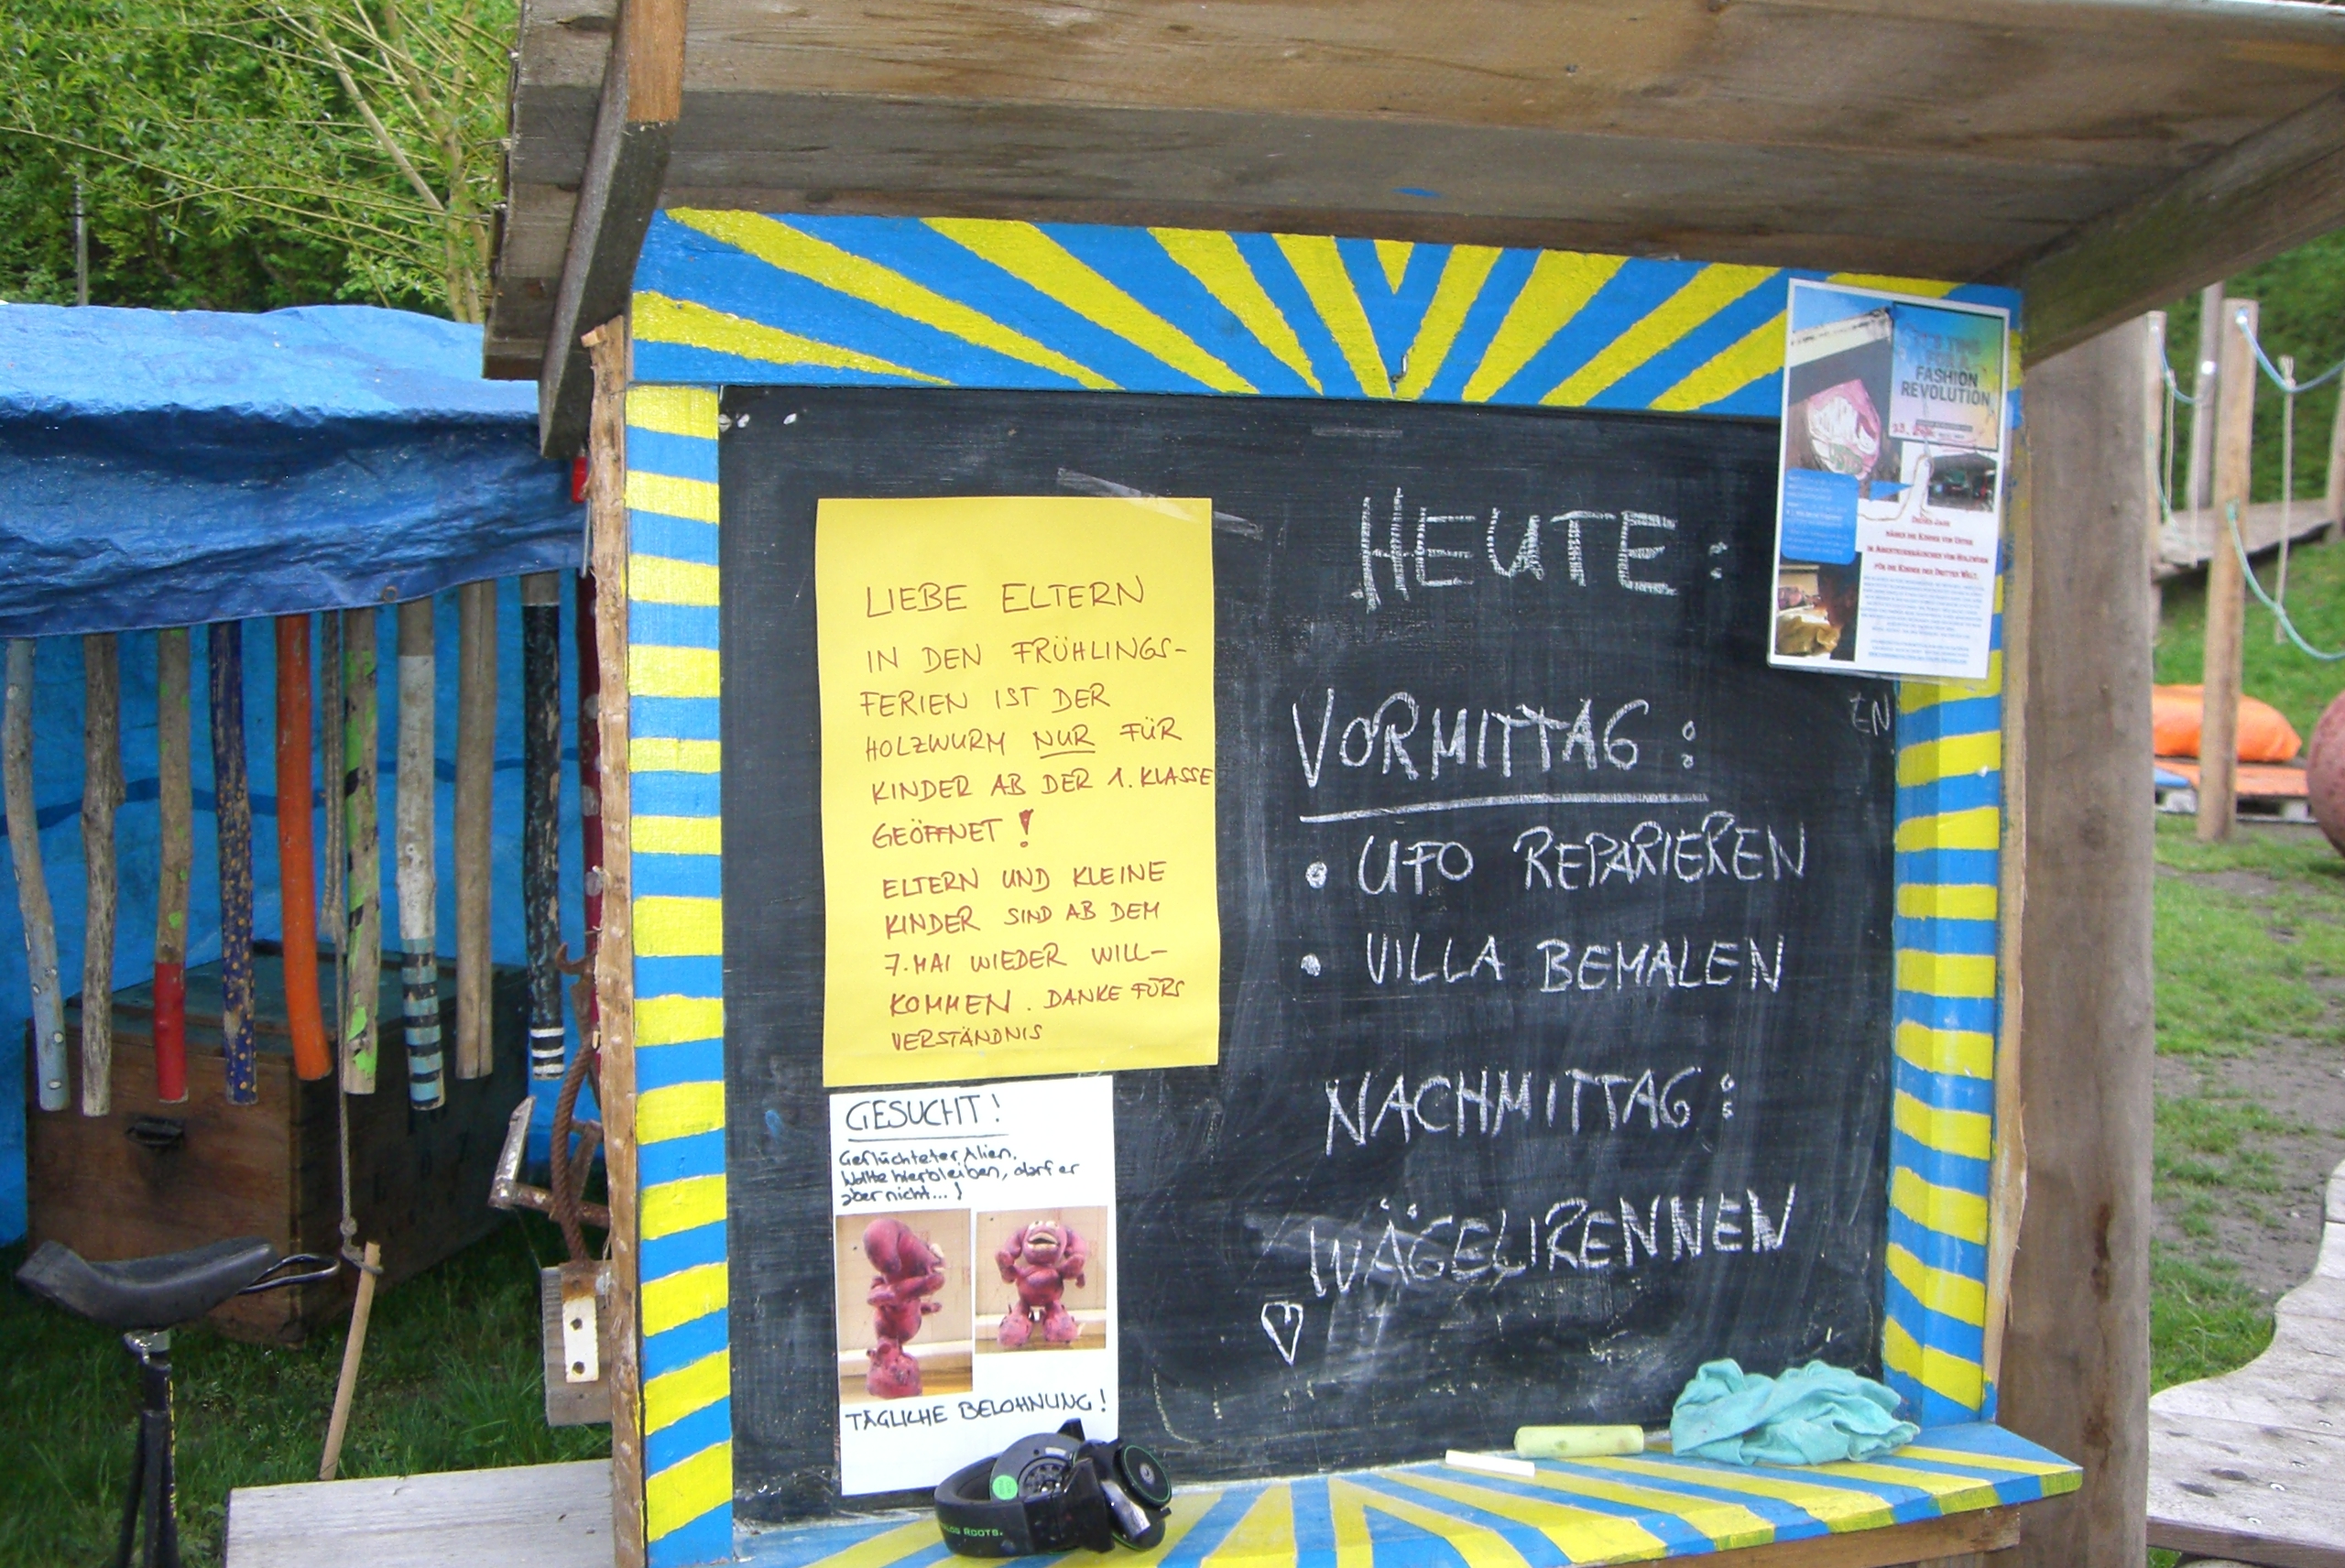 LIEBE ELTERN
IN DEN FRÜHLINGS-
FERIEN IST DER
HOLZWURM NUR FÜR
KINDER AB DER 1. KLASSE
GEÖFFNET!
ELTERN UND KLEINE
KINDER SIND AB DEM
7. MAI WIEDER WILL-
KOMMEN. DANKE FÜRS
VERSTÄNDNIS
GESUCHT!
Geflüchteter Alien.
Wollte hierbleiben, darf er
aber nicht...!
TÄGLICHE BELOHNUNG!
HEUTE:
VORMITTAG:
• UFO REPARIEREN
• VILLA BEMALEN
NACHMITTAG:
WÄGELIRENNEN
EN
FASHION
REVOLUTION
DIESES JAHR
NÄHEN DIE KINDER VON USTER
FÜR DIE KINDER DER DRITTEN WELT.
ROOTS.